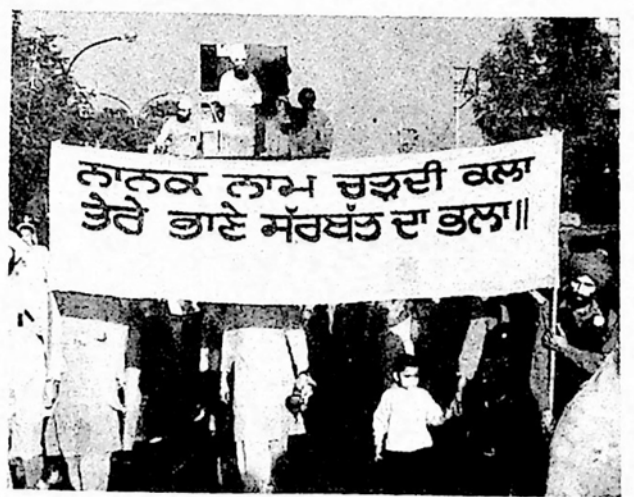 ਨਾਨਕ ਨਾਮ ਚੜ੍ਹਦੀ ਕਲਾ
ਤੇਰੇ ਭਾਣੇ ਸੱਰਬੱਤ ਦਾ ਭਲਾ॥